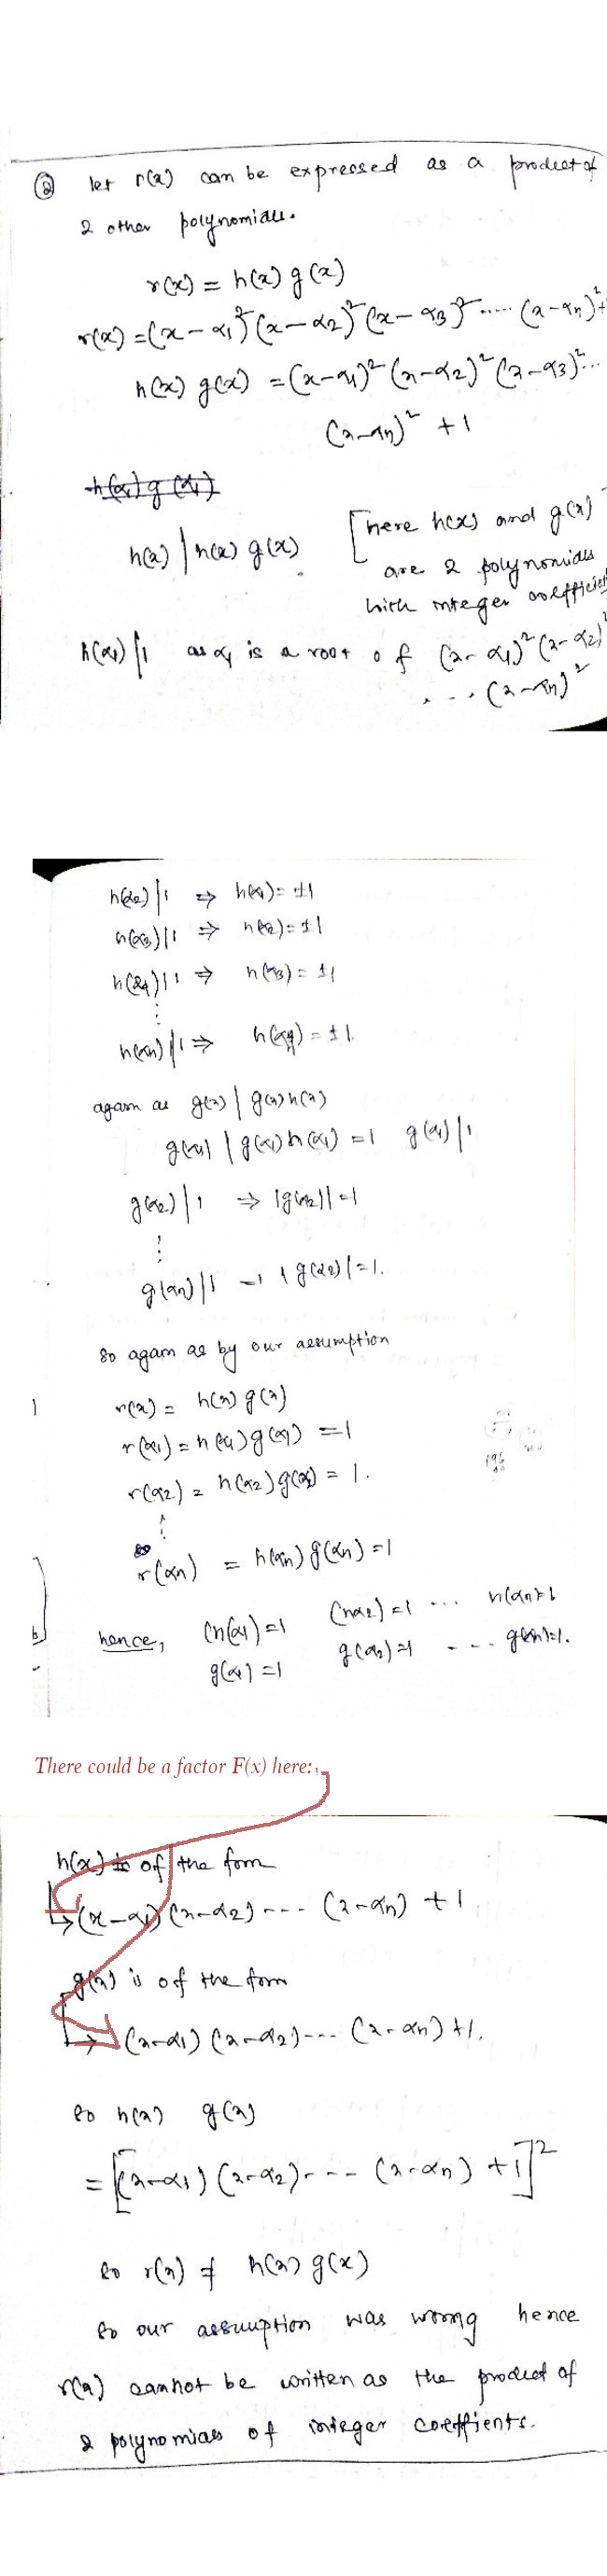 ② let r(x) can be expressed as a product of
2 other polynomials.
r(x) = h(x) g(x)
r(x) = (x-α₁)² (x-α₂)² (x-α₃)² ..... (x-αn)² +
h(x) g(x) = (x-α₁)² (x-α₂)² (x-α₃)² ...
(x-αn)² + 1
h(x) | h(x) g(x) [here h(x) and g(x)
are 2 polynomials
with integer coefficient
h(α₁) | 1 as α₁ is a root of (x-α₁)² (x-α₂)²
... (x-αn)²
h(α₂) | 1 ⇒ h(α₁) = ±1
h(α₃) | 1 ⇒ h(α₂) = ±1
h(α₄) | 1 ⇒ h(α₃) = ±1
⋮
h(αn) | 1 ⇒ h(α₄) = ±1.
again as g(x) | g(x) h(x)
g(α₁) | g(α₁) h(α₁) = 1 g(α₁) | 1
g(α₂) | 1 ⇒ |g(α₂)| = 1
⋮
g(αn) | 1 |g(α₂)| = 1.
so again as by our assumption
r(x) = h(x) g(x)
r(α₁) = h(α₁) g(α₁) = 1
r(α₂) = h(α₂) g(α₂) = 1.
⋮
r(αn) = h(αn) g(αn) = 1
hence, (h(α₁) = 1 (hα₂) = 1 ... h(αn)=1
g(α₁) = 1 g(α₂) = 1 ... g(αn)=1.
There could be a factor F(x) here:
h(x) is of the form
↳ (x-α₁) (x-α₂) ---- (x-αn) + 1
g(x) is of the form
↳ (x-α₁) (x-α₂) --- (x-αn) +1.
so h(x) g(x)
= [(x-α₁) (x-α₂) --- (x-αn) + 1]²
so r(x) ≠ h(x) g(x)
so our assumption was wrong hence
r(x) cannot be written as the product of
2 polynomials of integer coefficients.